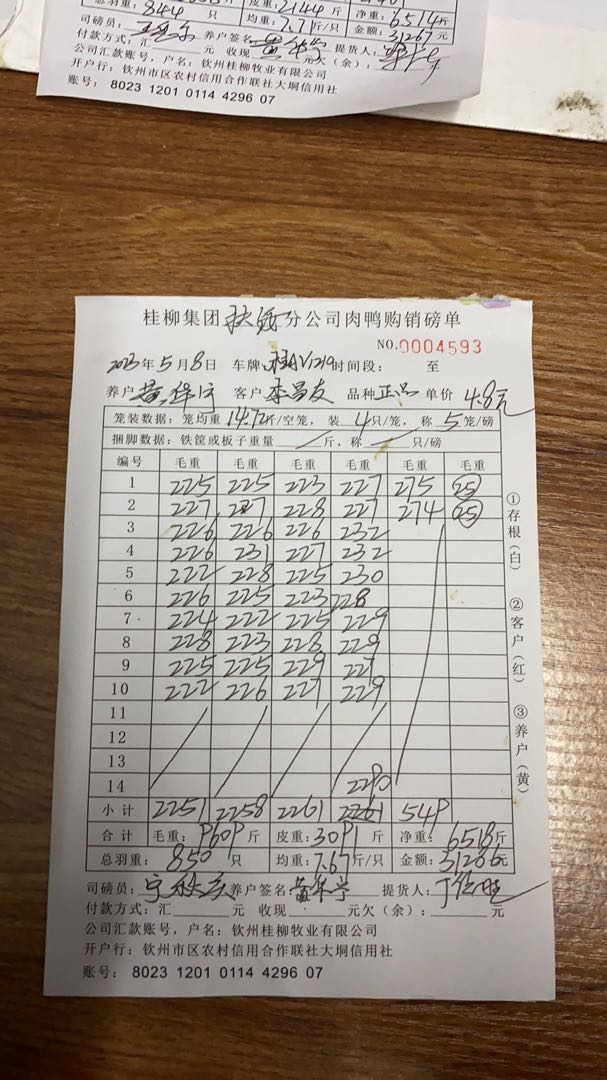 总羽重：844 只 皮重：2144斤 净重：6514斤
均重：7.71斤/只 金额：31267元
司磅员： 养户签名： 提货人：
付款方式：汇 元 收现 元欠（余）： 元
公司汇款账号，户名：钦州桂柳牧业有限公司
开户行：钦州市区农村信用合作联社大垌信用社
账号：8023 1201 0114 4296 07
桂柳集团扶绥分公司肉鸭购销磅单
NO.0004593
2023年5月8日 车牌：桂AV1219时间段： 至
养户黄华宁 客户李昌友 品种正品 单价 4.8元
笼装数据：笼均重14.72斤/空笼，装 4只/笼，称 5笼/磅
捆脚数据：铁筐或板子重量 斤，称 只/磅
编号 毛重 毛重 毛重 毛重 毛重 毛重
1 225 225 223 227 275 25
2 227 227 228 227 274 25
3 226 226 226 232
4 226 231 227 232
5 222 228 225 230
6 226 225 223 228
7 224 222 225 229
8 228 223 228 229
9 225 225 229 227
10 222 226 227 229
11
12
13
14 2290
小计 2251 2258 2261 2261 549
合计 毛重：9609斤 皮重：3091斤 净重：6518斤
总羽重：850 只 均重：7.67斤/只 金额：31286元
司磅员： 养户签名：黄华宁 提货人：
付款方式：汇 元 收现 元欠（余）： 元
公司汇款账号，户名：钦州桂柳牧业有限公司
开户行：钦州市区农村信用合作联社大垌信用社
账号：8023 1201 0114 4296 07
①存根（白）
②客户（红）
③养户（黄）